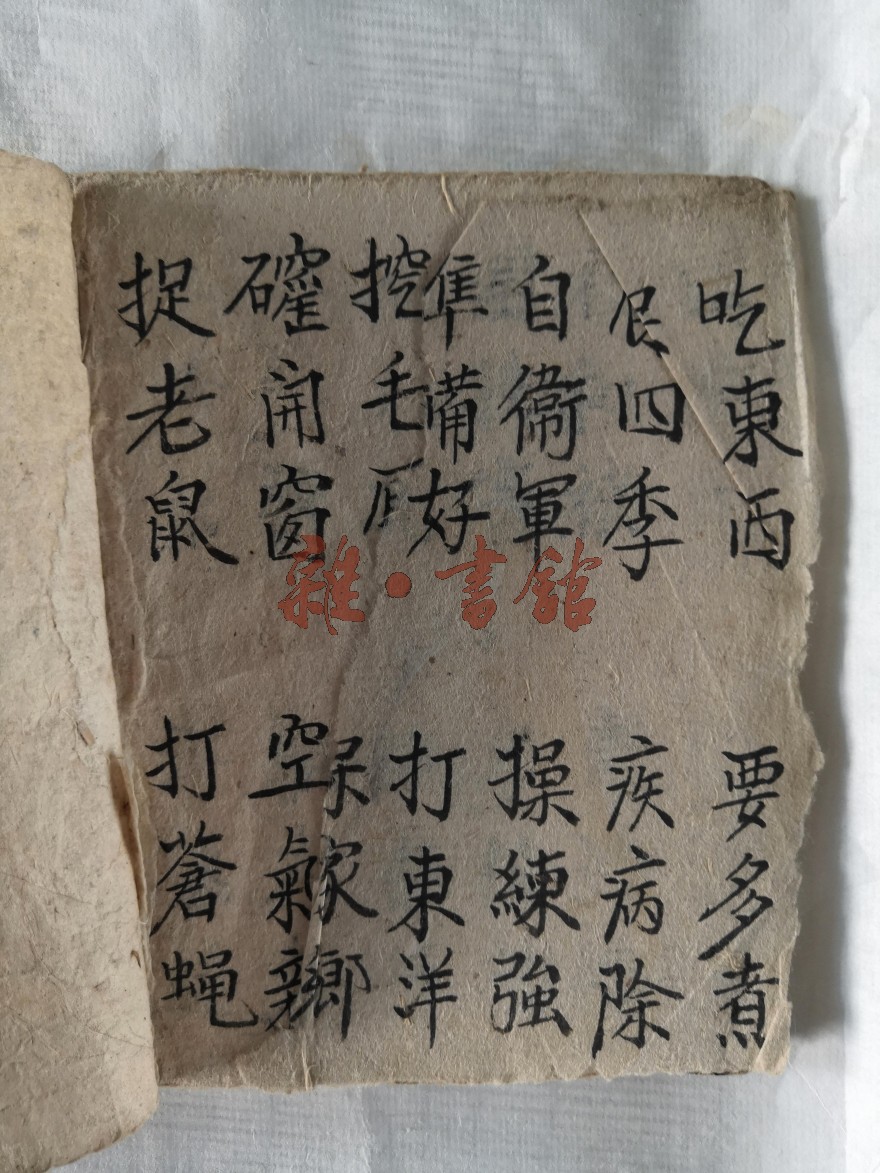 吃東西 要多煮
四季 疾病除
自衛軍 操練強
準備好 打東洋
挖毛 家鄉
確開窗 空氣
捉老鼠 打蒼蝇
雜·書館